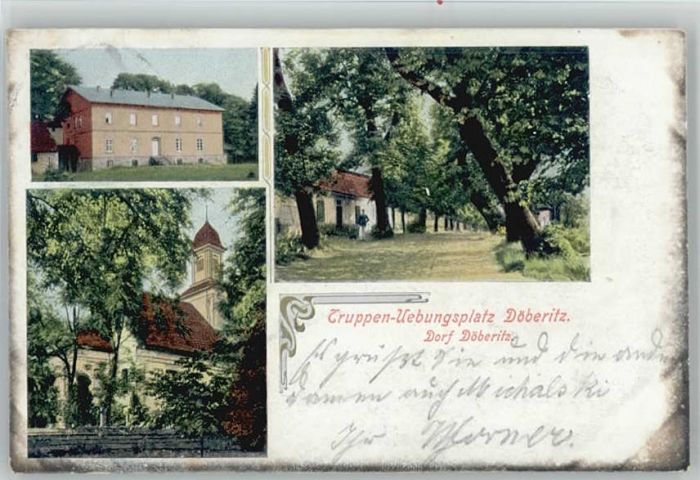 Truppen-Uebungsplatz Döberitz.
Dorf Döberitz.
Es grüßt Sie und die andern
Damen auch Michalski
Ihr